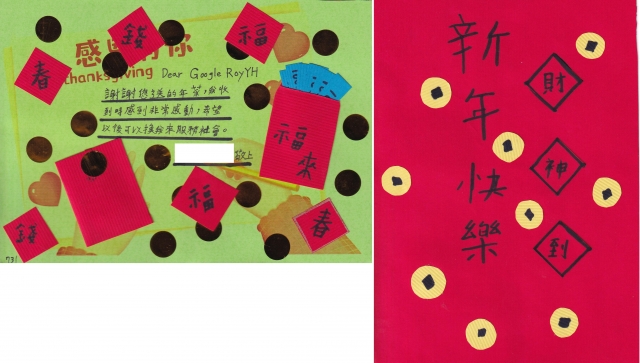 感恩有你
thanksgiving
Dear Google RoyYH
謝謝您送的年菜，收
到時感到非常感動，希望
以後可以換我來服務社會。
敬上
春
錢
福
福來
福
錢
春
731
新年快樂
財神到